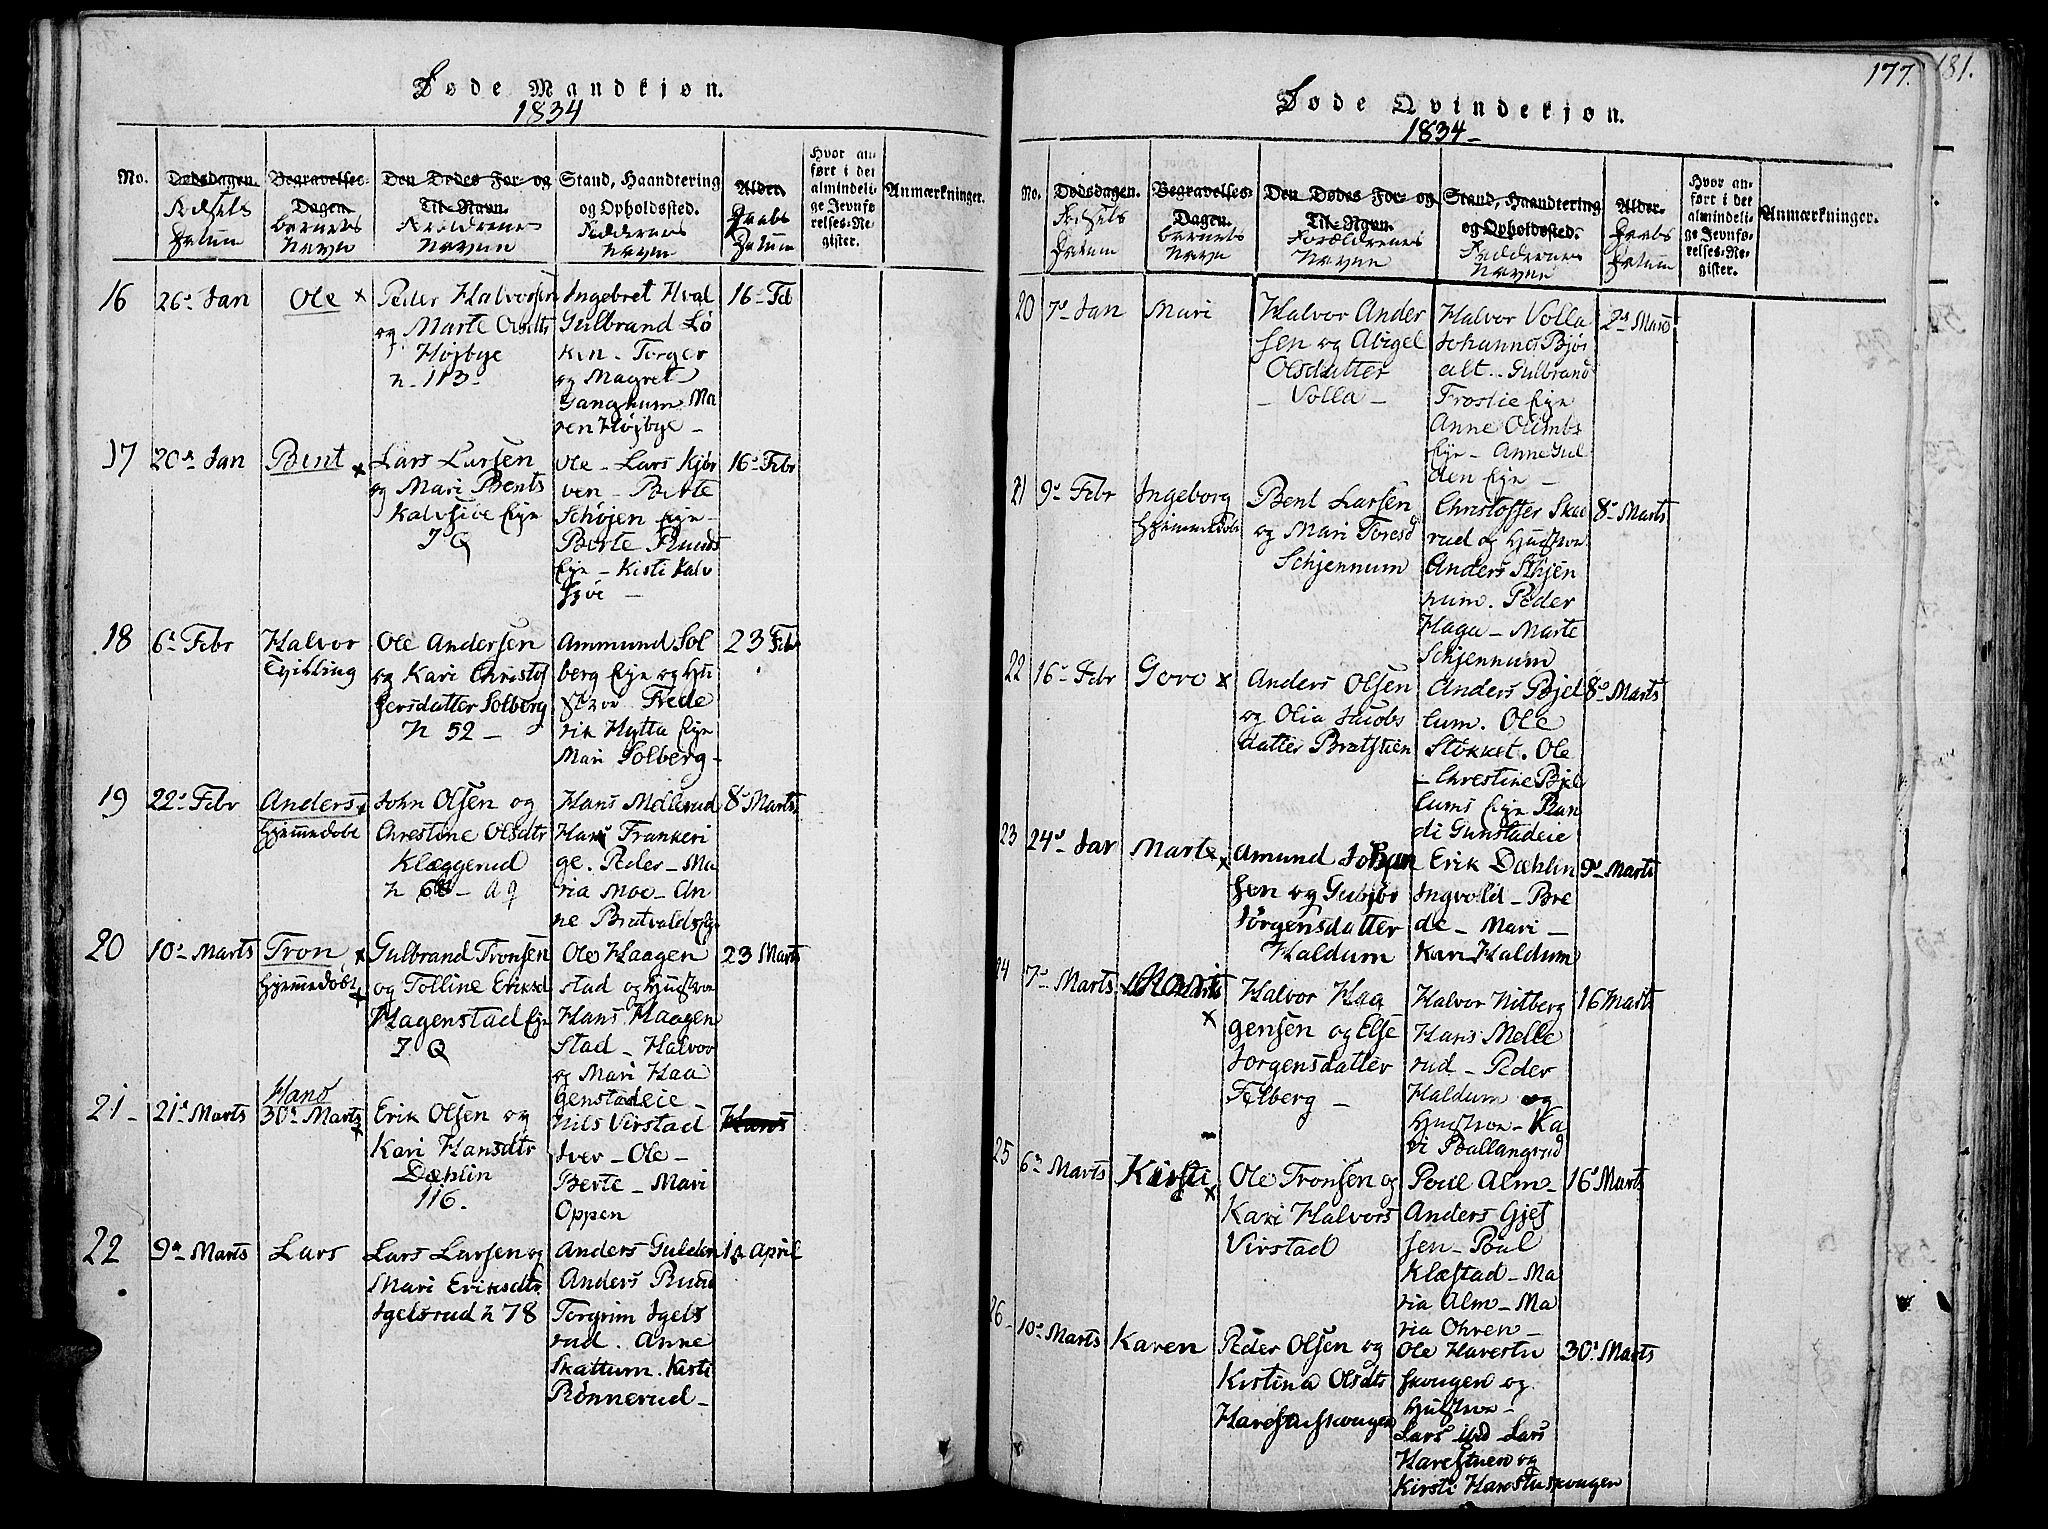 Døde Mandkjøn.
1834
No.
Dødsdagen.
Fødsels
Datum
Begravelses-
Dagen.
Barnets
Navn
Den Dødes For- og
Til-Navn.
Forældrenes
Navne
Stand, Haandtering
og Opholdssted.
Faddernes
Navne
Alder.
Daabs
Datum
Hvor an-
ført i det
almindeli-
ge Jevnfø-
relses-Re-
gister.
Anmærkninger.
16 26de Jan Ole x
Peder Halvorsen
og Marte Olsdtr
Højbye
n. 113-
Ingebret Hval
Gulbrand Lø
ken - Torger
og Magret
Ganghum Ma
ren Højbye -
16 Feb
17 20de Jan Bent x
Lars Larsen
og Mari Bents
Kalvsjøe Eje
7 Q
Ole - Lars Kjør
ven - Berte
Schøjen Eje -
Berte Ruuds
Eje - Kisti Kalv
sjøe -
16 Febr
18 6te Febr Halvor
Tvilling
Ole Andersen
og Kari Christof
fersdatter Solberg
n 52 -
Ammund Sol
berg Eje og Hu
strue Frede
rik Hytta Eje
Mari Solberg -
23 Feb
19 22de Febr Anders x
Hjemmedøbt
John Olsen og
Chrestine Olsdtr
Klæggerud
Hans Mellerud
Hans Frankeri
ge. Peder - Ma
ria Moe - An
ne Bratvolds Eje
8de Marts
20 10de Marts Tron x
Hjemmedøbt x
Gulbrand Tronsen
og Tolline Eriksd
Hagenstad Eje
7 Q
Ole Haagen
stad og Hustrue
Hans Haagen
stad - Halvor
og Mari Haa
genstadeie
23 Marts
21- 21de Marts
Hans
30de Marts x
Erik Olsen og
Kari Hansdtr
Dæhlin
116.
Nils Virstad
Iver - Ole -
Berte - Mari
Oppen
Hans
22 9de Marts Lars
Lars Larsen og
Mari Eriksdtr
Igelsrud n 78
Anders Gulden
Anders Ruud
Torgrim Igels
rud. Anne
Skattum. Kisti
Rønnerud -
1de April
177. 181.
Døde Qvindekjøn.
1834 -
No.
Dødsdagen.
Fødsels
Datum
Begravelses-
Dagen.
Barnets
Navn
Den Dødes For- og
Til-Navn.
Forældrenes
Navne
Stand, Haandtering
og Opholdssted.
Faddernes
Navne
Alder.
Daabs
Datum
Hvor an-
ført i det
almindeli-
ge Jevnfø-
relses-Re-
gister.
Anmærkninger.
20 7de Jan Mari
Halvor Ander
sen og Abigel
Olsdatter
- Volla -
Halvor Volla
Johannes Bjør
alt - Gulbrand
Frostie Eje
Anne Olimbs
Eje - Anne Gul
den Eje -
2de Marts
21 9de Febr Ingeborg
Hjemmedøbt
Bent Larsen
og Mari Toresd
Schjennum
Christoffer Skae
rud og Hustrue
Anders Schjen
num. Peder
Haga - Marte
Schjennum
8de Marts
22 16de Febr Goro x
Anders Olsen
og Olia Jacobs
datter Bratstien
Anders Bjel
lum. Ole
Støkket. Ole
- Chrestine Bjel
lums Eje Ran
di Gunstadeie
8de Marts
23 24de Jan Marte x
Amund Johan
sen og Gubjør
Jørgensdatter
Haldum
Erik Dæhlin
Ingvold - Bre
de - Mari -
Kari Haldum
9de Marts
24 7de Marts Mari x
Halvor Haa
gensen og Else
Jørgensdatter
Felberg -
Halvor Nitberg
Hans Melle
rud - Peder
Haldum og
Hustrue - Ka
ri Ballangrud
16 Marts
25 6te Marts Kirsti x
Ole Tronsen og
Kari Halvors
Virstad
Poul Alm -
Anders Gjet
sen - Poul
Klæstad - Ma
ria Alm - Ma
ria Ohren -
16de Marts
26- 10de Marts Karen
Peder Olsen og
Kistina Olsdtr
Harestuskougen
Ole Harestu
skougen og
Hustrue -
Lars ibd - Lars
Harestuen og
Kirsti Harestuskougen
30de Marts